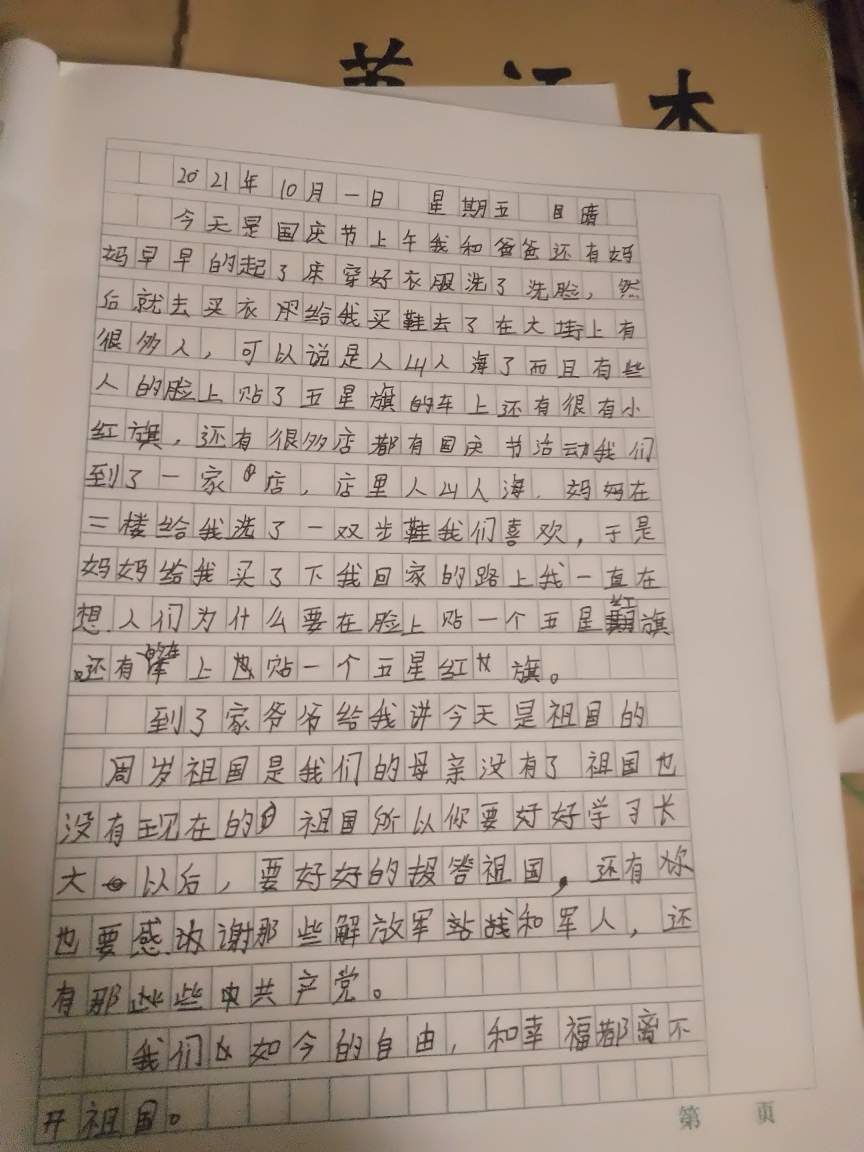 本
2021年10月一日 星期五 晴
今天是国庆节上午我和爸爸还有妈
妈早早的起了床穿好衣服洗了洗脸，然
后就去买衣服给我买鞋去了在大街上有
很多人，可以说是人山人海了而且有些
人的脸上贴了五星旗的车上还有很有小
红旗，还有很多店都有国庆节活动我们
到了一家店，店里人山人海．妈妈在
三楼给我选了一双步鞋我们喜欢，于是
妈妈给我买了下我回家的路上我一直在
想人们为什么要在脸上贴一个五星红旗
还有车上也贴一个五星红旗。
到了家爷爷给我讲今天是祖国的
周岁祖国是我们的母亲没有了祖国也
没有现在的祖国所以你要好好学习长
大以后，要好好的报答祖国，还有你
也要感谢那些解放军站战和军人，还
有那些共产党。
我们如今的自由，和幸福都离不
开祖国。
第 页